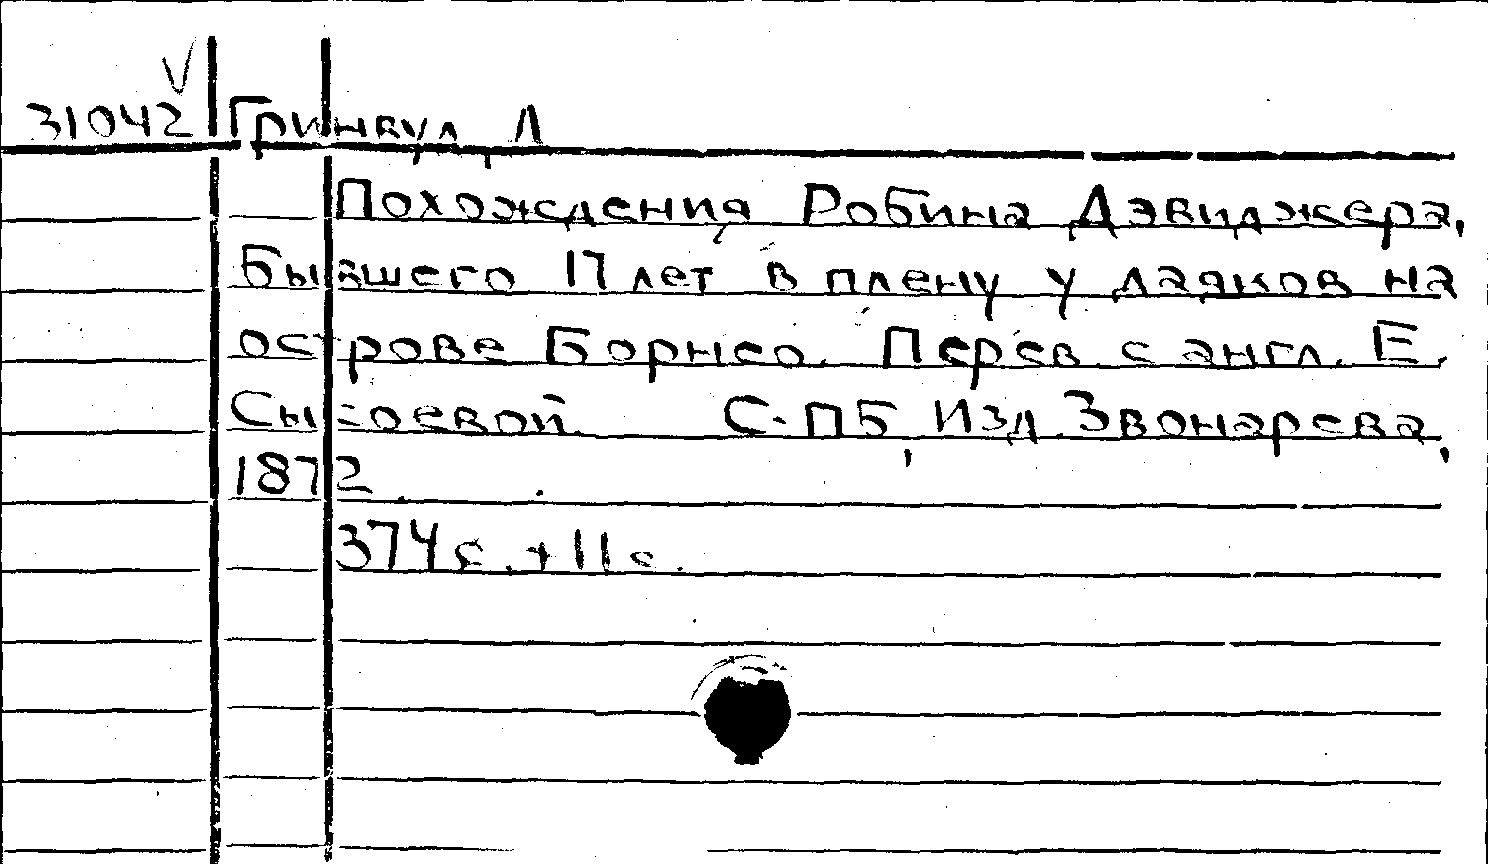 31042 Гринвуд, Д
Похождения Робина Дэвиджера,
бывшего 17 лет в плену у даяков на
острове Борнео. Перев с англ. Е.
Сысоевой. С-ПБ, Изд. Звонарева,
1872.
374 с. + II с.